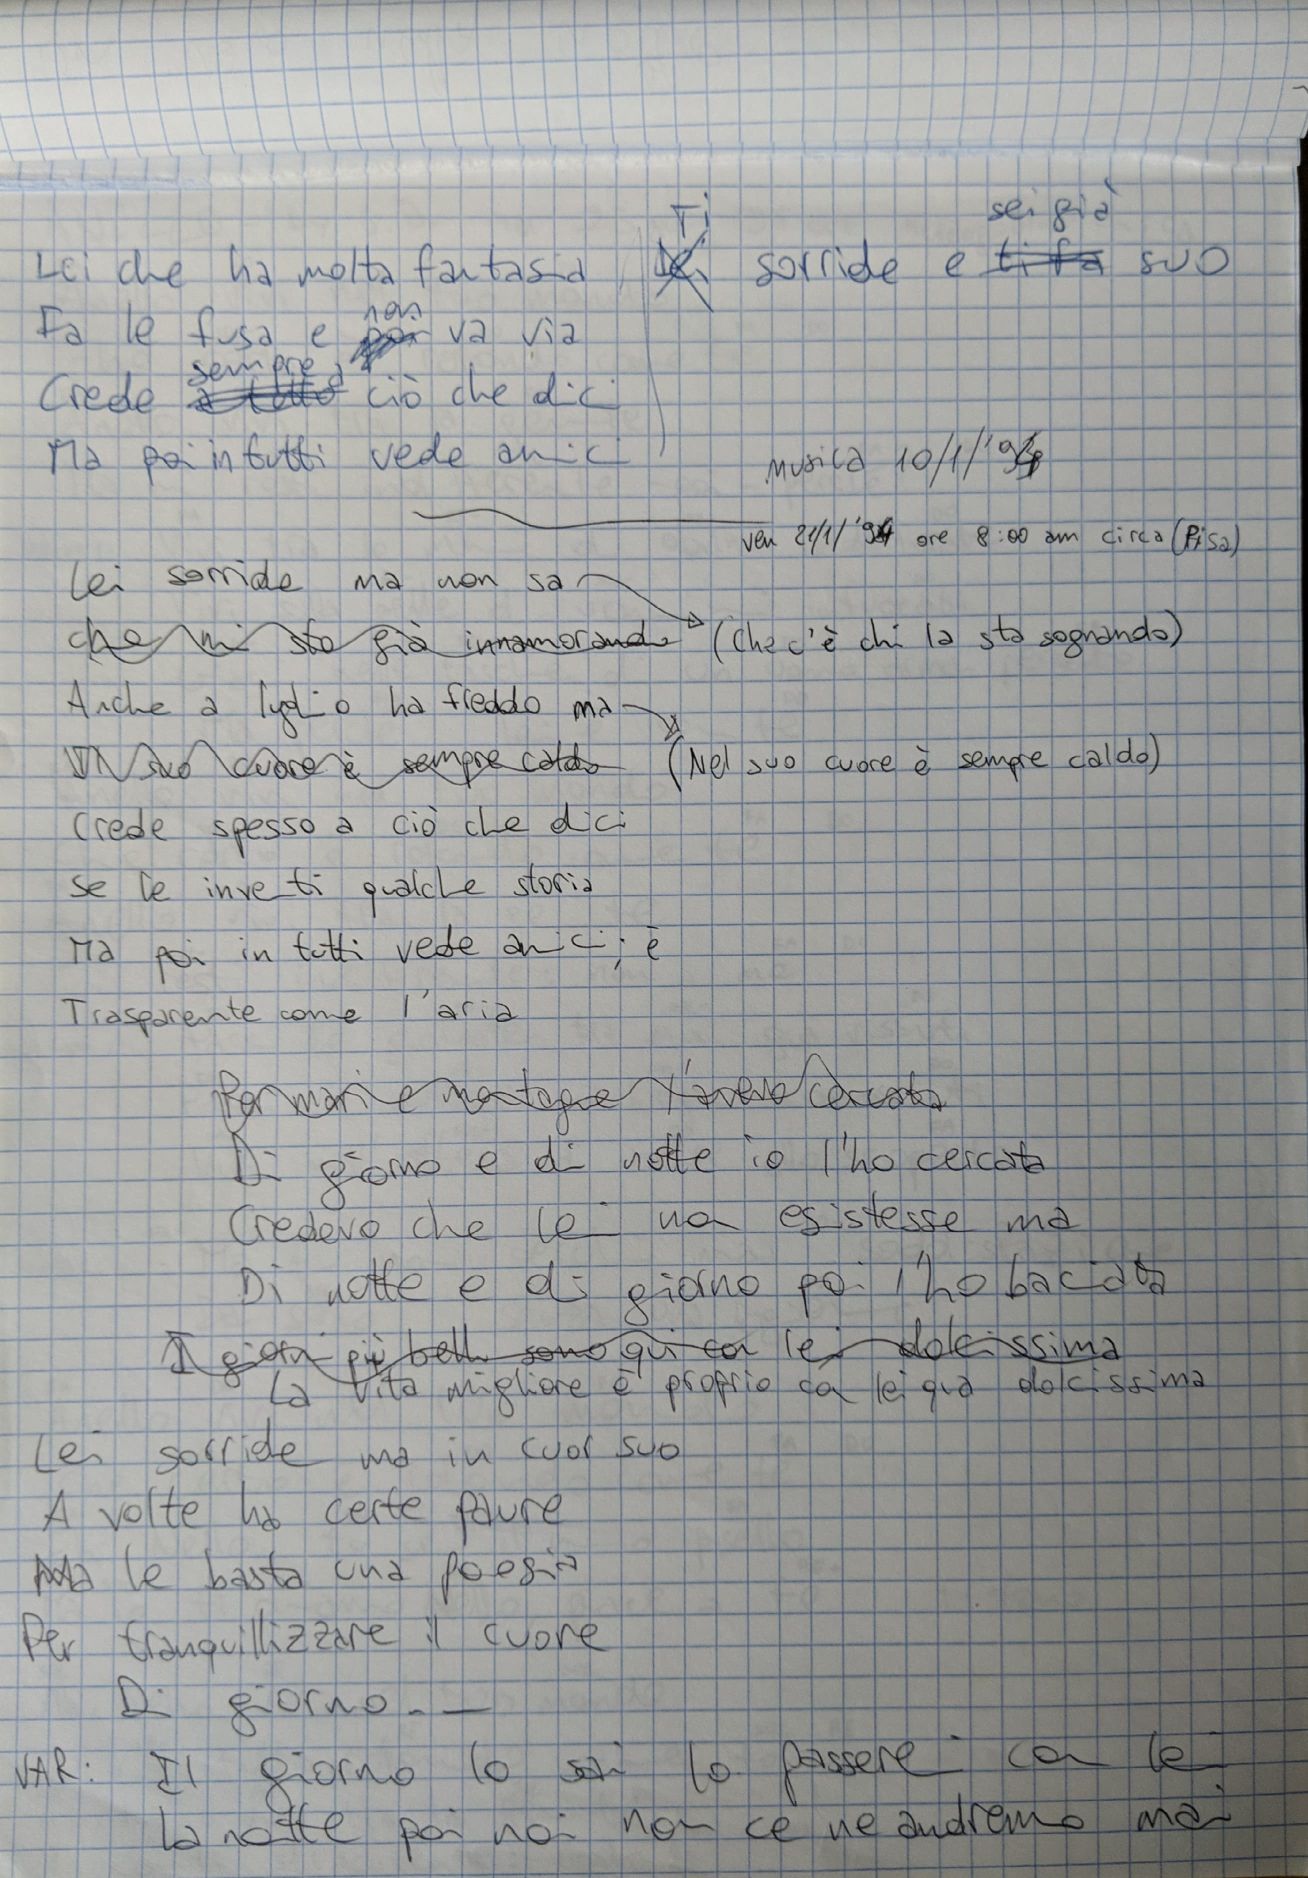 Lei che ha molta fantasia Ti sorride e sei già ti fa suo
Fa le fusa e non poi va via
Crede sempre a a tutto ciò che dici
Ma poi in tutti vede amici
musica 10/1/'94
ven 21/1/'94 ore 8:00 am circa (Pisa)
Lei sorride ma non sa
che mi sto già innamorando (Che c'è chi la sta sognando)
Anche a luglio ha freddo ma
Il suo cuore è sempre caldo (Nel suo cuore è sempre caldo)
Crede spesso a ciò che dici
se le inventi qualche storia
Ma poi in tutti vede amici; è
Trasparente come l'aria
Per mari e montagne l'avevo cercata
Di giorno e di notte io l'ho cercata
Credevo che lei non esistesse ma
Di notte e di giorno poi l'ho baciata
I giorni più belli sono qui con lei dolcissima
La vita migliore è proprio con lei qua dolcissima
Lei sorride ma in cuor suo
A volte ha certe paure
Ma le basta una poesia
Per tranquillizzare il cuore
Di giorno...
VAR: Il giorno lo sai lo passerei con lei
la notte poi noi non ce ne andremo mai